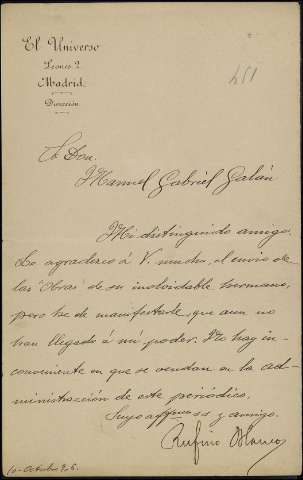 El Universo
Madrid.
Dirección.
451
Sr Don
Manuel Gabriel Galán
Mi distinguido amigo.
Le agradezco á V. mucho, el envio de
las "Obras" de su inolvidable hermano,
pero he de manifestarle, que aun no
han llegado á mi poder. No hay in-
conveniente en que se vendan en la ad-
ministración de este periódico.
Suyo y amigo.
Rufino Blanco
10-Octubre 906